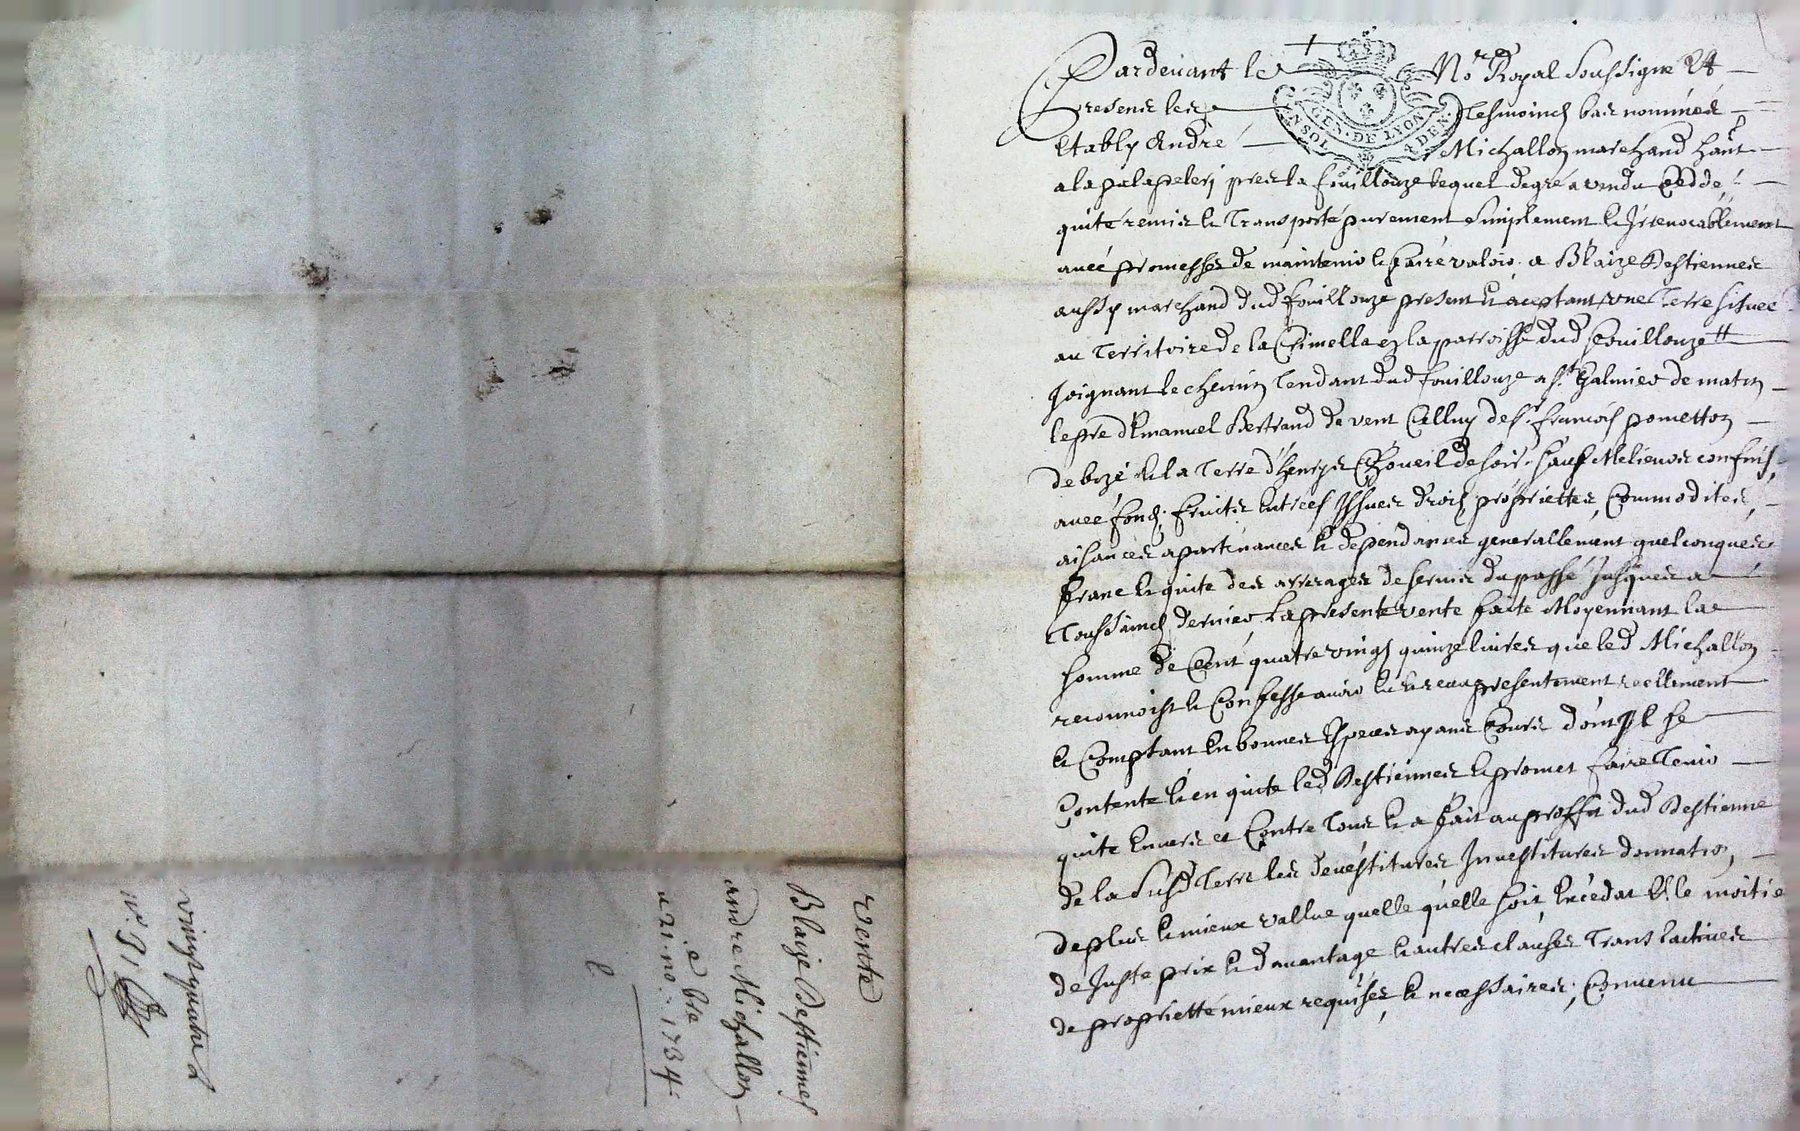 Pardevant le No.re Royal soussigné Et
presens les Tesmoins bas nommés
Etably André Michallon marchand hant
a la palapelery pres la fouillouze lequel de gré a vendu Ceddé
quité remis et Transporté purement simplement et Irrevocablement
avec promesses de maintenir et faire valoir a Blaize Destiennes
aussy marchand dud fouillouze present et aceptant une Terre situee
au Territoire de la Crimella en la parroisse dud fouillouze
Joignant le chemin Tendant dud fouillouze a St Galmier de matin
le pre d'Emanuel Bertrand de vent Celluy de Sr francois pometton
de bize et la Terre d'henrys de soir sauf Melieurs confins
avec fonds fruicts Entrees Issues droits propriettes Commodites
aisances apartenances et dependances generallement quelconques
franc et quite des arrerages de servis du passé Jusques a
Toussaincts dernier La presente vente faite Moyennant la
somme de Cent quatre vings quinze livres que led Michallon
reconnoist et Confesse avoir eu et receu presentement reellement
et Comptant En bonnes Especes ayans Cours dont Il se
Contente et en quite led Destiennes et promet faire Tenir
quite Envers et Contre Tous et a fait au proffit dud Destienne
de la susd Terre les devestitures Investitures donnation
de plus et mieux vallue quelle quelle soit Excedat Elle moitié
de Juste prix et davantage et autres clauses Translactives
de proprietté mieux requises et necessaires, Convenu
vente
Blaize Destiennes
a
andre Michallon
21 no. 1734
vingt quatre